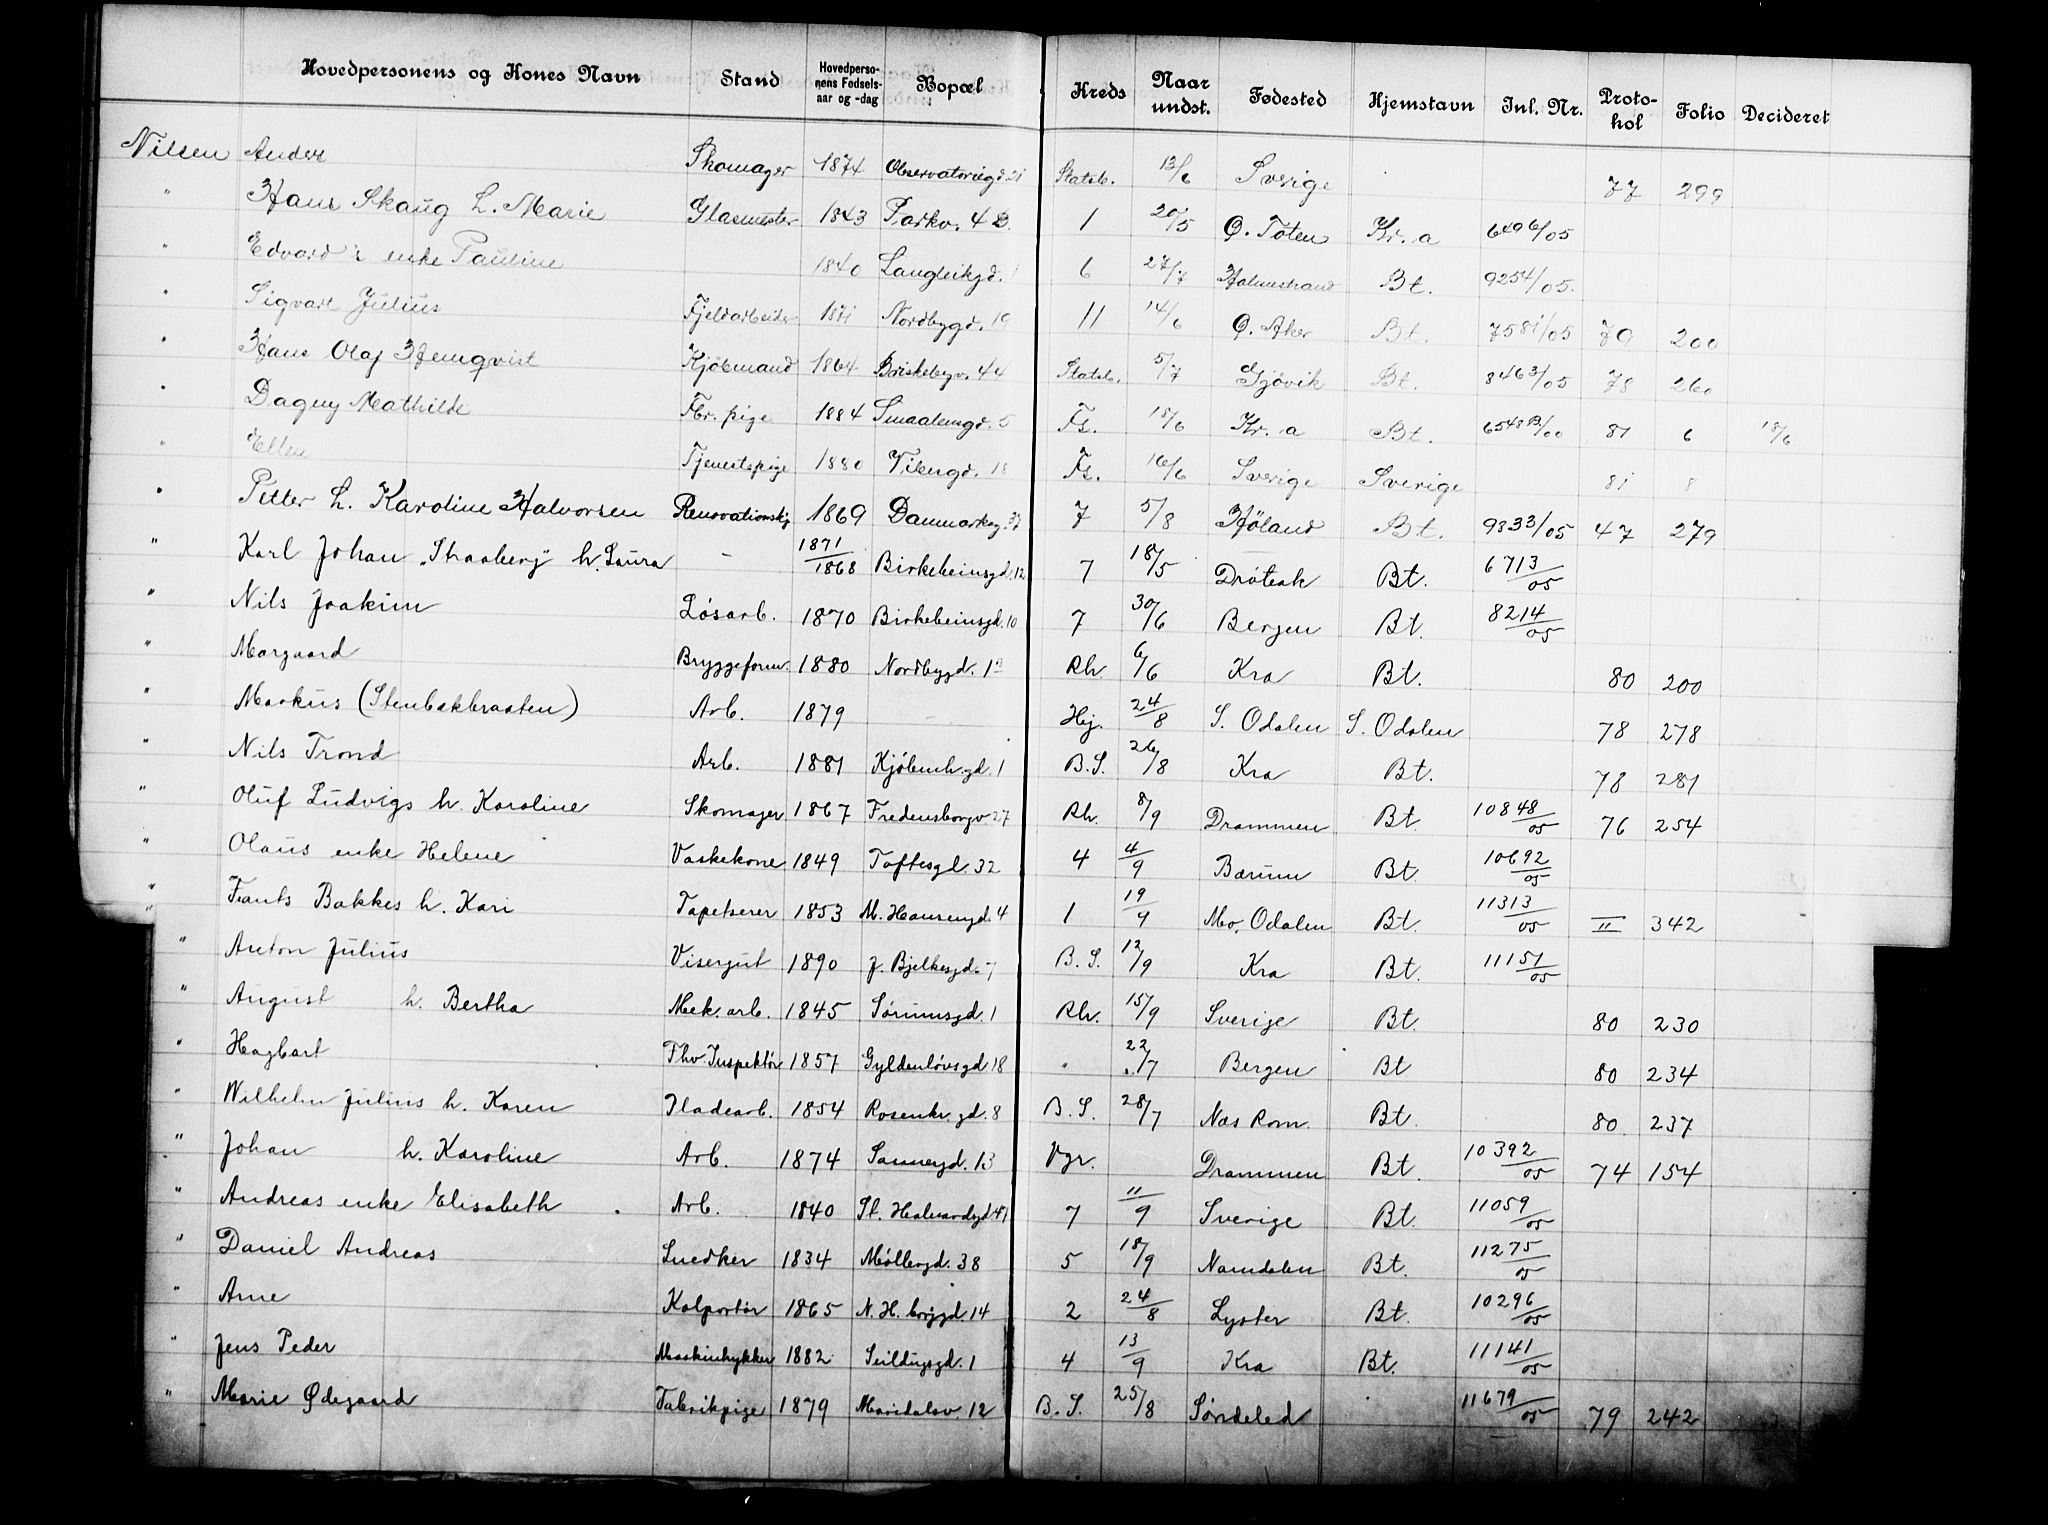 Hovedpersonens og Kones Navn Stand Hovedperso- nens Fødsels- aar og -dag Bopæl Kreds Naar undst. Fødested Hjemstavn Inl. Nr. Proto- kol Folio Decideret
Nilsen Anders Skomager 1874 Observatoriegd. 21 Statsb. 13/6 Sverige 77 299
" Hans Skaug h. Marie Glasmester 1843 Parkv. 4 B. 1 20/5 Ø. Toten Kr.a 6496/05
" Edvard's enke Pauline 1840 Langleikgd. 1 6 27/7 Holmestrand Bt. 9254/05.
" Sigvart Julius Fjeldarbeider 1871 Nordbygd. 19 11 14/6 Ø. Aker Bt. 7581/05 79 200
" Hans Olaf Hemqvist Kjöbmand 1864 Briskebyv. 44 Statsb. 5/7 Gjövik Bt. 8463/05 78 260
" Dagny Mathilde Fbr. pige 1884 Smaalensgd. 5 Fs. 18/6 Kr.a Bt. 6548B/00 81 6 18/6
" Ellen Tjenestepige 1880 Vibesgd. 18 Fs. 16/6 Sverige Sverige 81 8
" Petter h. Karoline Halvorsen Renovationskj 1869 Danmarksg. 37 7 5/8 Høland Bt. 9833/05 47 279
" Karl Johan "Straaberg" h. Laura — 1871/1868 Birkebeinsgd. 12 7 18/5 Drøbak Bt. 6713/05
" Nils Joakim Løsarb. 1870 Birkebeinsgd. 10 7 30/6 Bergen Bt. 8214/05
" Margaard Bryggeform. 1880 Nordbygd. 13 Rh 6/6 Kra Bt. 80 200
" Markus (Stenbakbraaten) Arb. 1879 — Hj. 24/8 S. Odalen S. Odalen 78 278
" Nils Trond Arb. 1881 Kjøbenh.gd. 1 B.S. 26/8 Kra Bt. 78 281
" Oluf Ludvigs h. Karoline Skomager 1867 Fredensborgv. 27 Rh. 8/9 Drammen Bt. 10848/05 76 254
" Olaus enke Helene Vaskekone 1849 Toftesgd. 32 4 4/9 Bærum Bt. 10692/05
" Frants Bakkes h. Kari Tapetserer 1853 M. Hansensgd. 4 1 19/9 No. Odalen Bt. 11313/05 II 342
" Anton Julius Visergut 1890 J. Bjelkesgd. 7 B.S. 12/9 Kra Bt. 11151/05
" August h. Bertha Mek. arb. 1845 Sørumsgd. 1 Rh. 15/9 Sverige Bt. 80 230
" Hagbart Fhv. Inspektør 1857 Gyldenløvsgd 18 " 22/7 Bergen Bt 80 234
" Wilhelm Julius h. Karen Pladearb. 1854 Rosenkr.gd. 8 B.S. 28/7 Nes Rom. Bt. 80. 237
" Johan h. Karoline Arb. 1874 Sannergd. 13 Vgr. Drammen Bt. 10392/05 74 154
" Andreas enke Elisabeth Arb. 1840 St. Halvardsgd 41 7 11/9 Sverige Bt. 11059/05
" Daniel Andreas Snedker 1834 Møllergd. 38 5 18/9 Namdalen Bt. 11275/05
" Arne Kolportør 1865 N. H. 14 2 24/8 Lyster Bt. 10296/05
" Jens Peder Maskintrykker 1882 Seildugsgd. 1 4 13/9 Kra Bt. 11141/05
" Marie Ødegaard Fabrikpige 1879 Maridalsv. 12 B.S. 25/8 Søndeled 11679/05 79 242